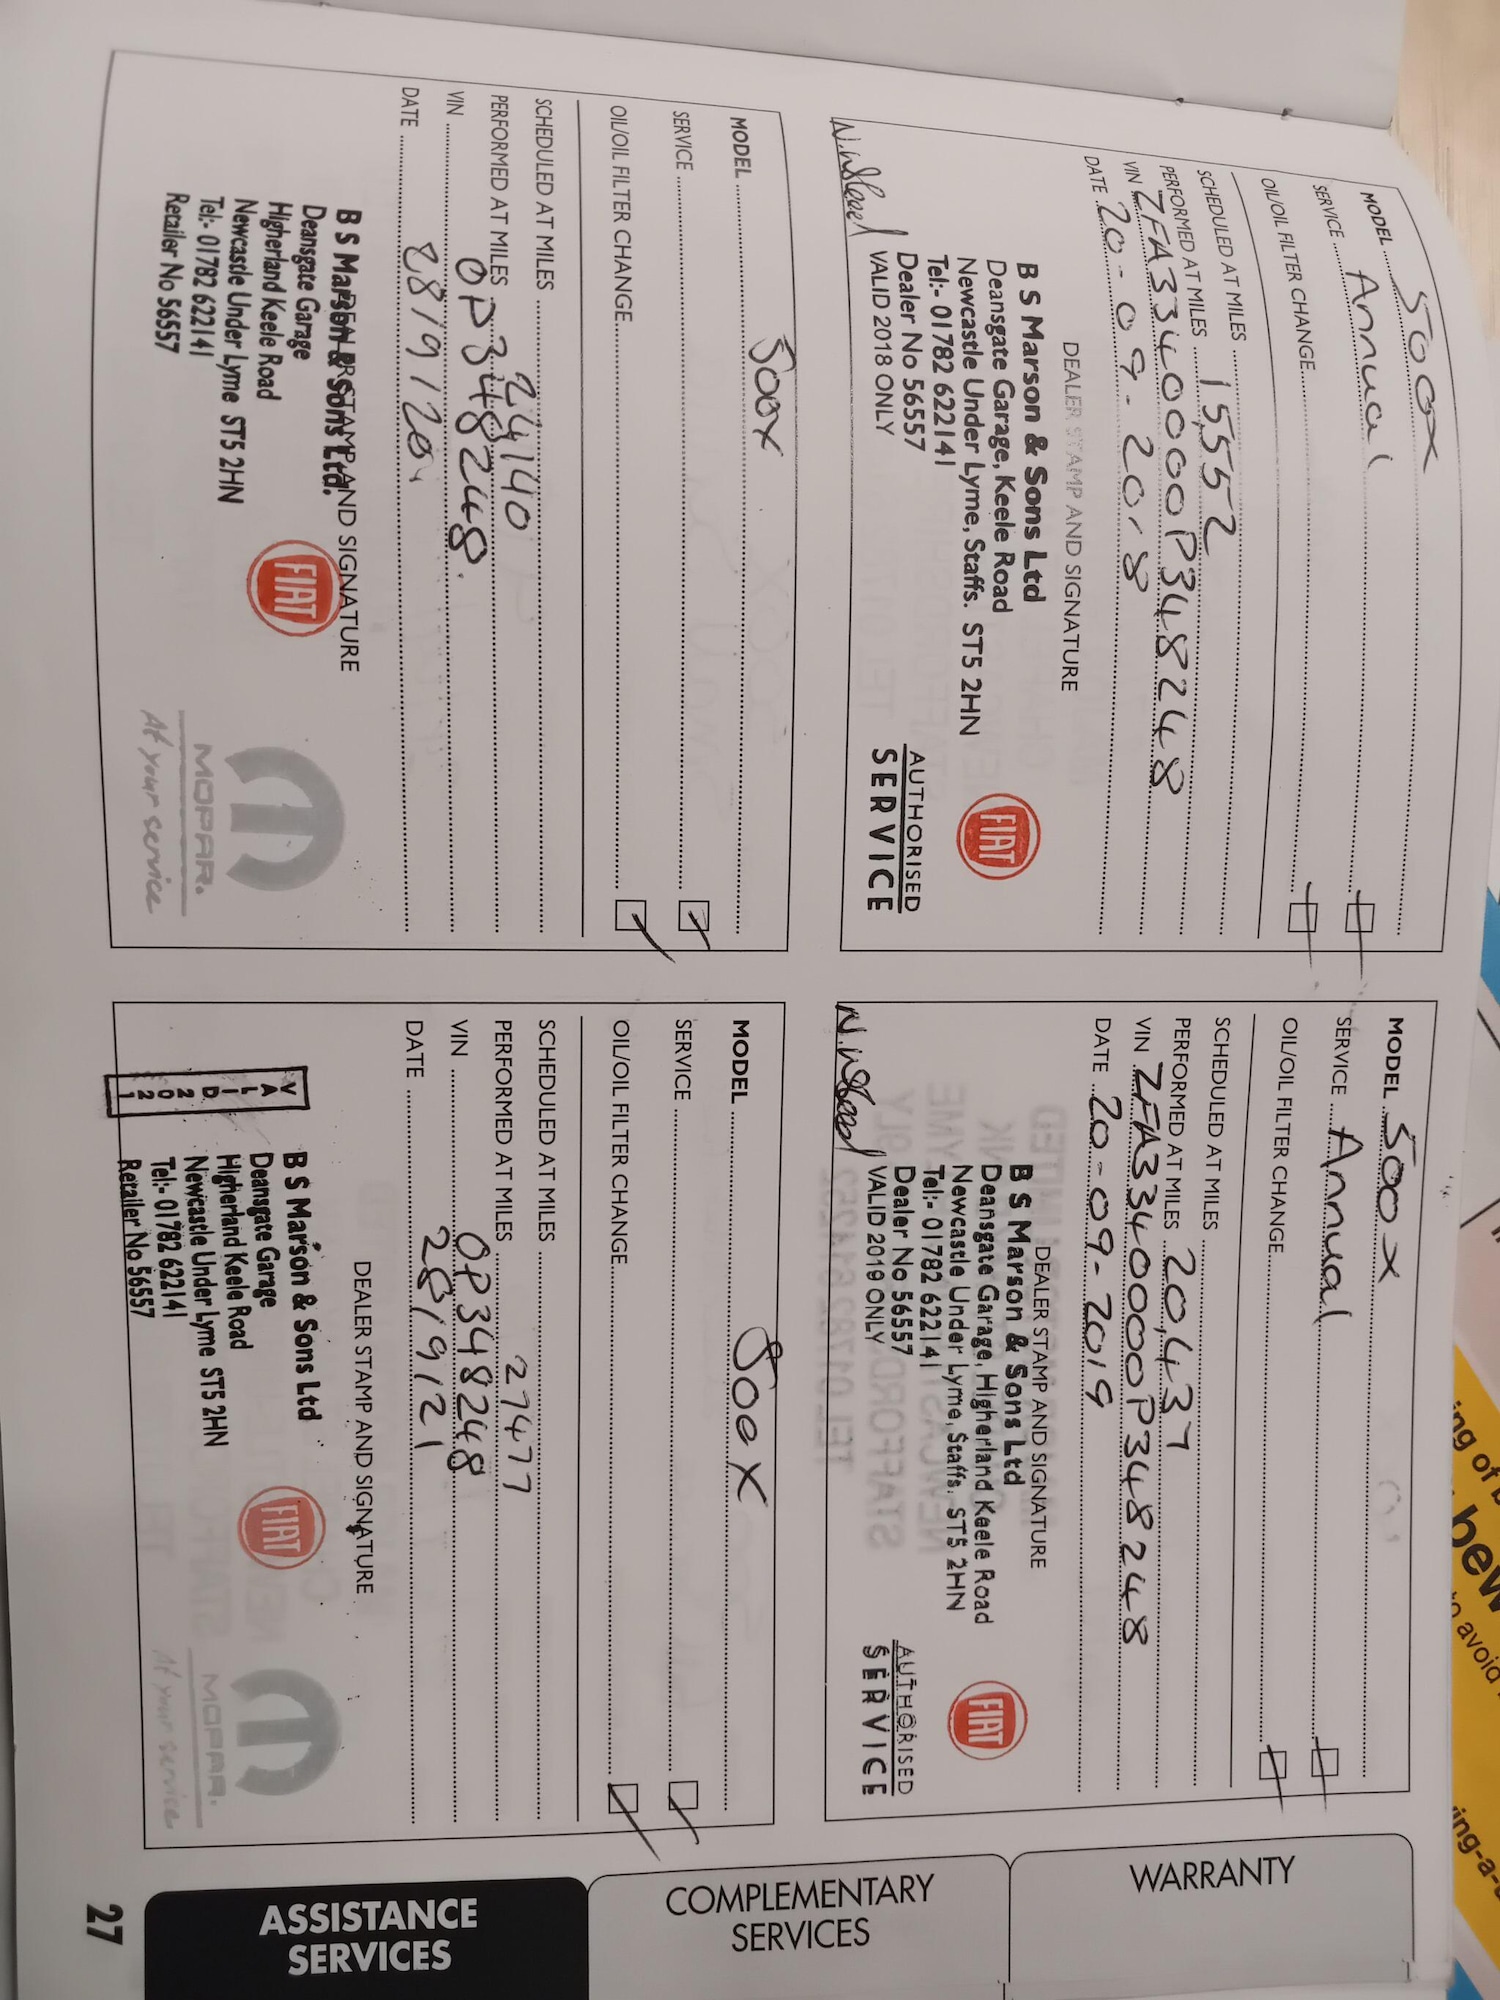 MODEL 500X
SERVICE Annual
OIL/OIL FILTER CHANGE
SCHEDULED AT MILES
PERFORMED AT MILES 15,552
VIN ZFA3340000P348248
DATE 20-09-2018
DEALER STAMP AND SIGNATURE
B S Marson & Sons Ltd
Deansgate Garage, Keele Road
Newcastle Under Lyme, Staffs. ST5 2HN
Tel:- 01782 622141
Dealer No 56557
VALID 2018 ONLY
FIAT
AUTHORISED
SERVICE
MODEL 500X
SERVICE Annual
OIL/OIL FILTER CHANGE
SCHEDULED AT MILES
PERFORMED AT MILES 20,437
VIN ZFA3340000P348248
DATE 20-09-2019
DEALER STAMP AND SIGNATURE
B S Marson & Sons Ltd
Deansgate Garage, Higherland Keele Road
Newcastle Under Lyme, Staffs. ST5 2HN
Tel:- 01782 622141
Dealer No 56557
VALID 2019 ONLY
FIAT
AUTHORISED
SERVICE
MODEL 500X
SERVICE
OIL/OIL FILTER CHANGE
SCHEDULED AT MILES
PERFORMED AT MILES 24140
VIN 0P348248.
DATE 28/9/20
DEALER STAMP AND SIGNATURE
B S Marson & Sons Ltd.
Deansgate Garage
Higherland Keele Road
Newcastle Under Lyme ST5 2HN
Tel:- 01782 622141
Retailer No 56557
FIAT
MOPAR.
At your service
MODEL 500X
SERVICE
OIL/OIL FILTER CHANGE
SCHEDULED AT MILES
PERFORMED AT MILES 27477
VIN 0P348248
DATE 28/9/21
DEALER STAMP AND SIGNATURE
VALID 2021
B S Marson & Sons Ltd
Deansgate Garage
Higherland Keele Road
Newcastle Under Lyme ST5 2HN
Tel:- 01782 622141
Retailer No 56557
FIAT
MOPAR.
At your service
WARRANTY
COMPLEMENTARY
SERVICES
ASSISTANCE
SERVICES
27